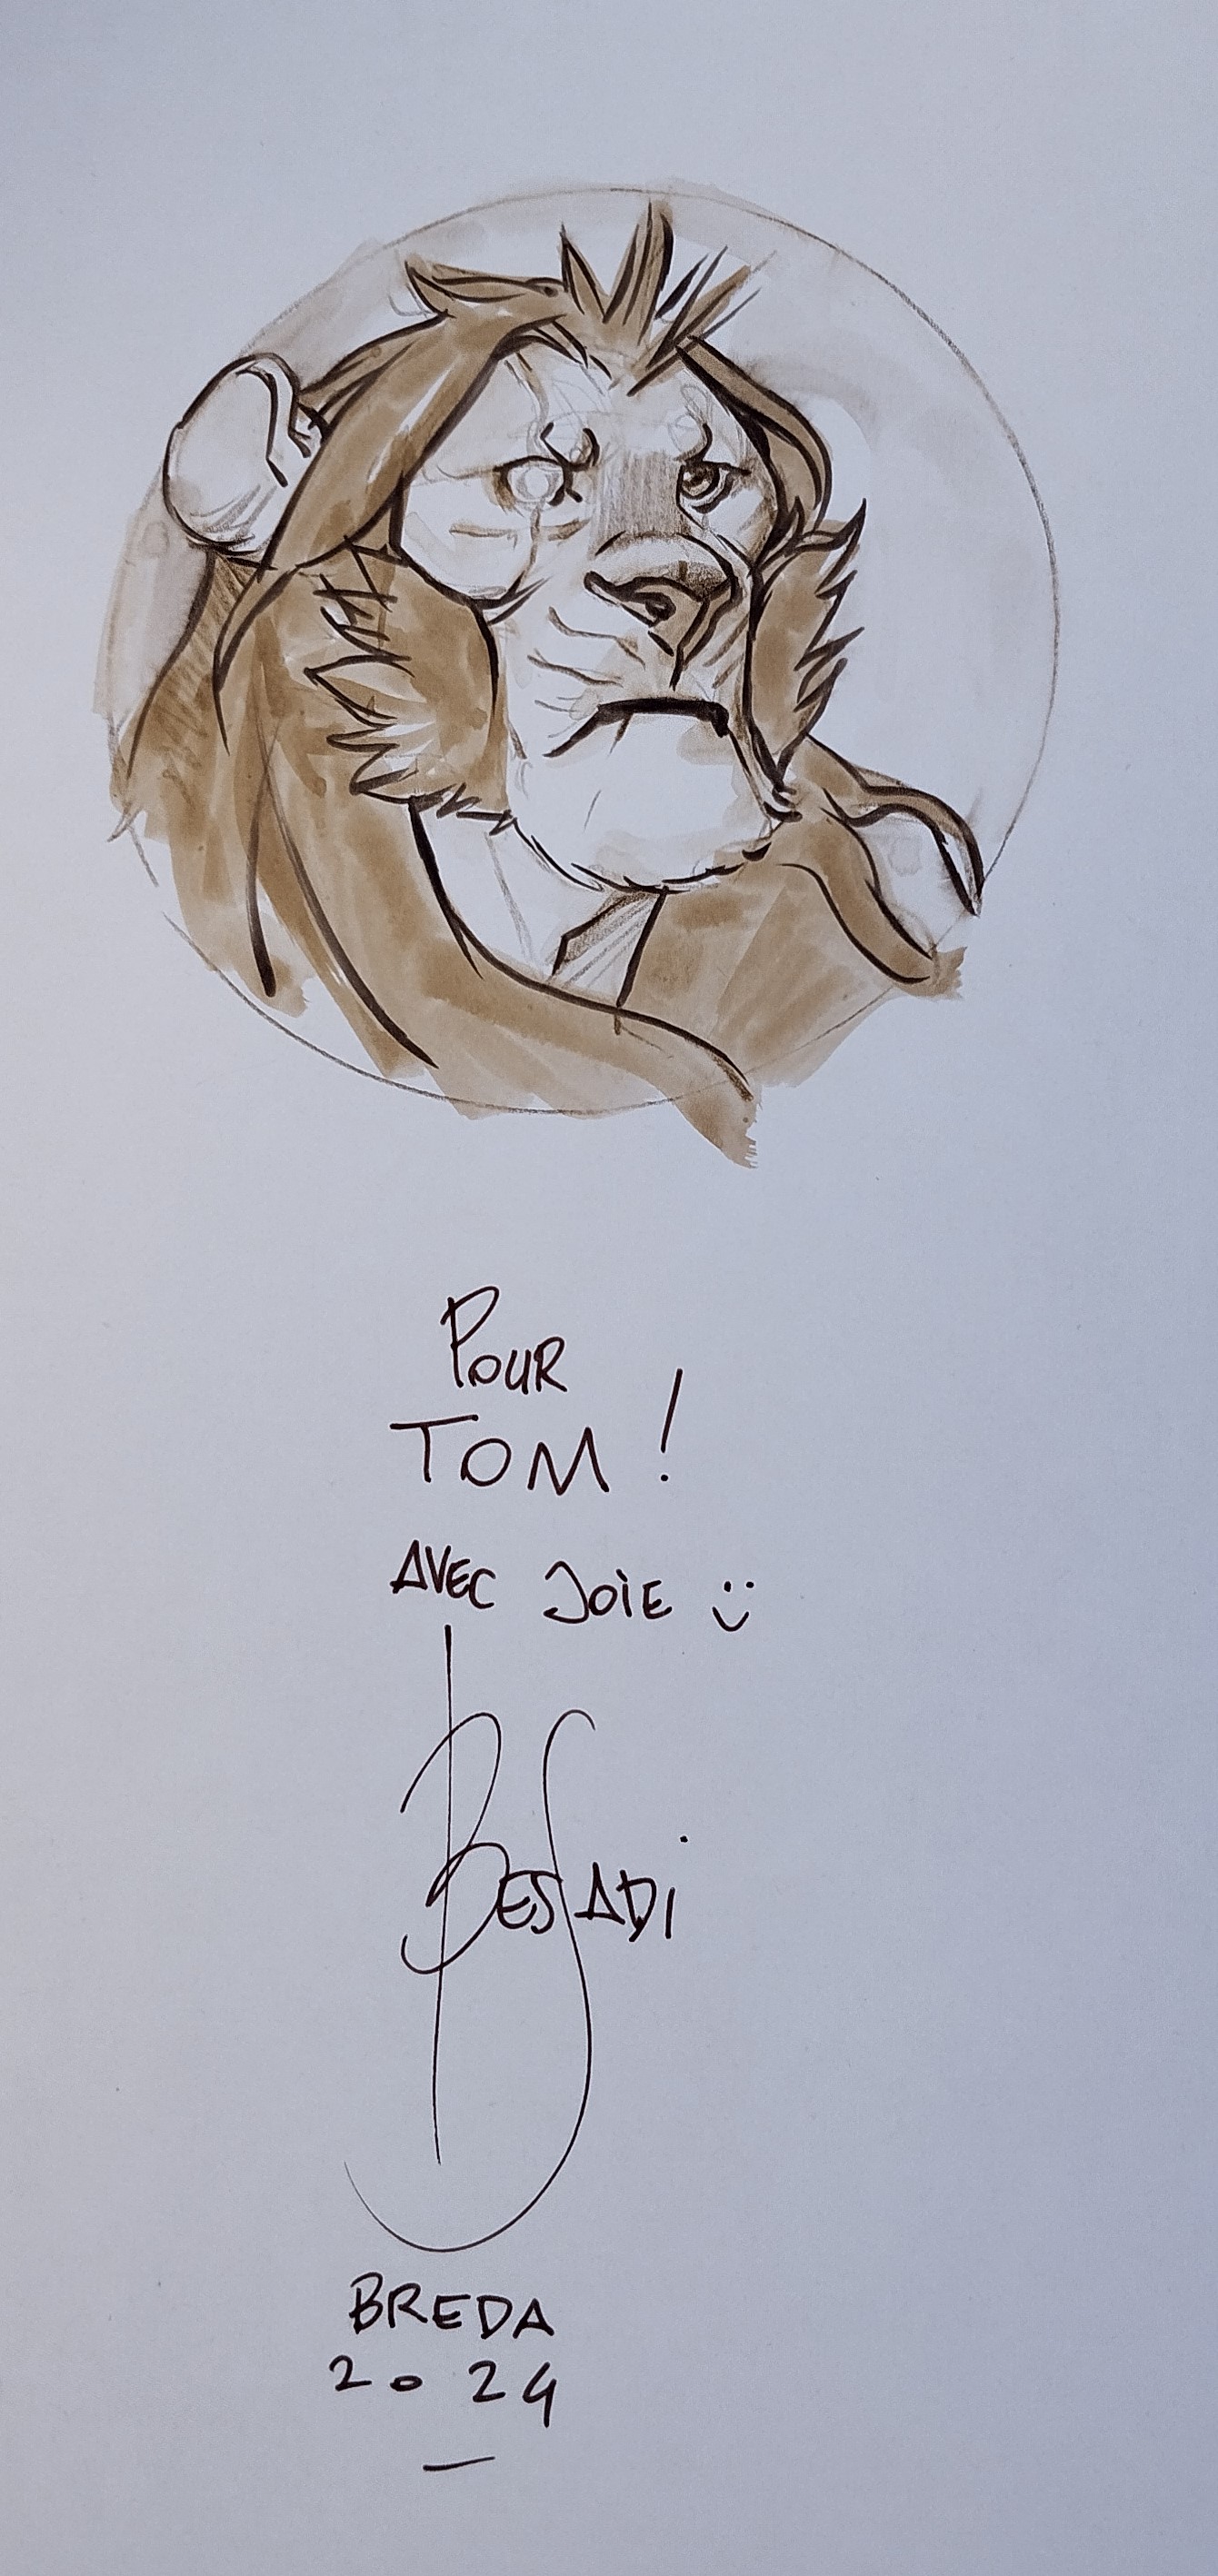 POUR
TOM !
AVEC JOIE :)
BESSADI
BREDA
2024